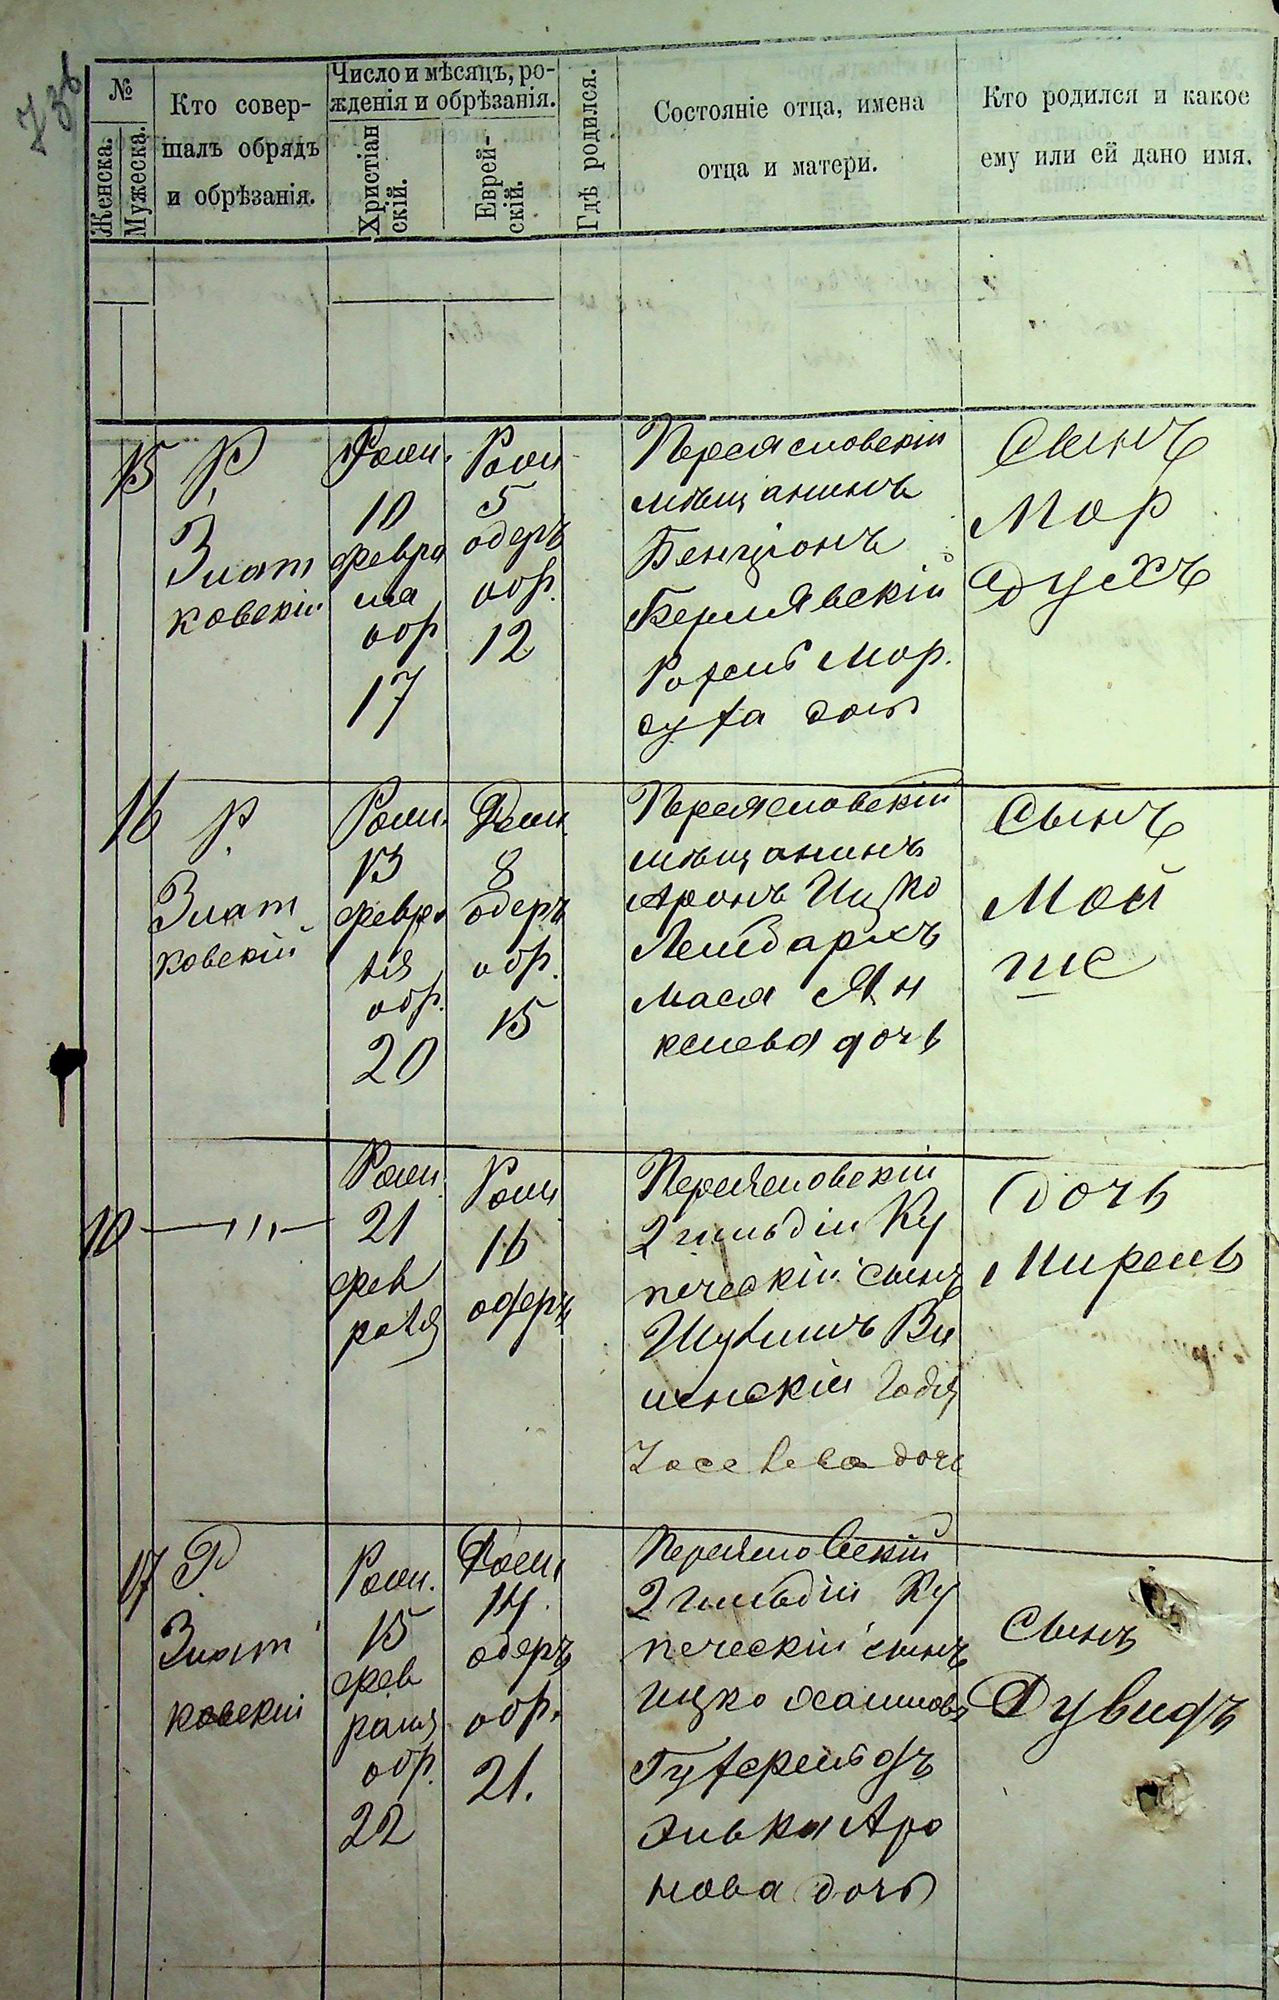 736
№
Женска.
Мужеска.
Кто совер-
шалъ обрядъ
и обрѣзанія.
Число и мѣсяцъ, ро-
жденія и обрѣзанія.
Христіан
скій.
Еврей-
скій.
Гдѣ родился.
Состояніе отца, имена
отца и матери.
Кто родился и какое
ему или ей дано имя.
15
Р.
Злат
ковскій
Роди.
10
февра
ля
обр
17
Роди
5
одеръ
обр.
12
Переясловскій
мѣщанинъ
Бенціонъ
Берлявскій
Мор.
дочь
Сынъ
Мор
духъ
16
Р.
Злат
ковскій
Роди.
13
февра
ля
обр.
20
Роди
8
одеръ
обр.
15
Переясловскій
мѣщанинъ
Аронъ Ицко
Лембархъ
Мася Ян
келева дочь
Сынъ
Мой
ше
10
Роди
21
фев
раля
Роди
16
одеръ
Переясловскій
2 гильдіи Ку
печескій сынъ
Шулимъ Ви
ленскій
дочь
Дочь
Мирель
17
Р.
Злат
ковскій
Роди.
15
фев
раля
обр.
22
Роди
14.
одеръ
обр.
21.
Переясловскій
2 гильдіи Ку
печескій сынъ
Ицко
Элька Аро
нова дочь
Сынъ
Дувидъ